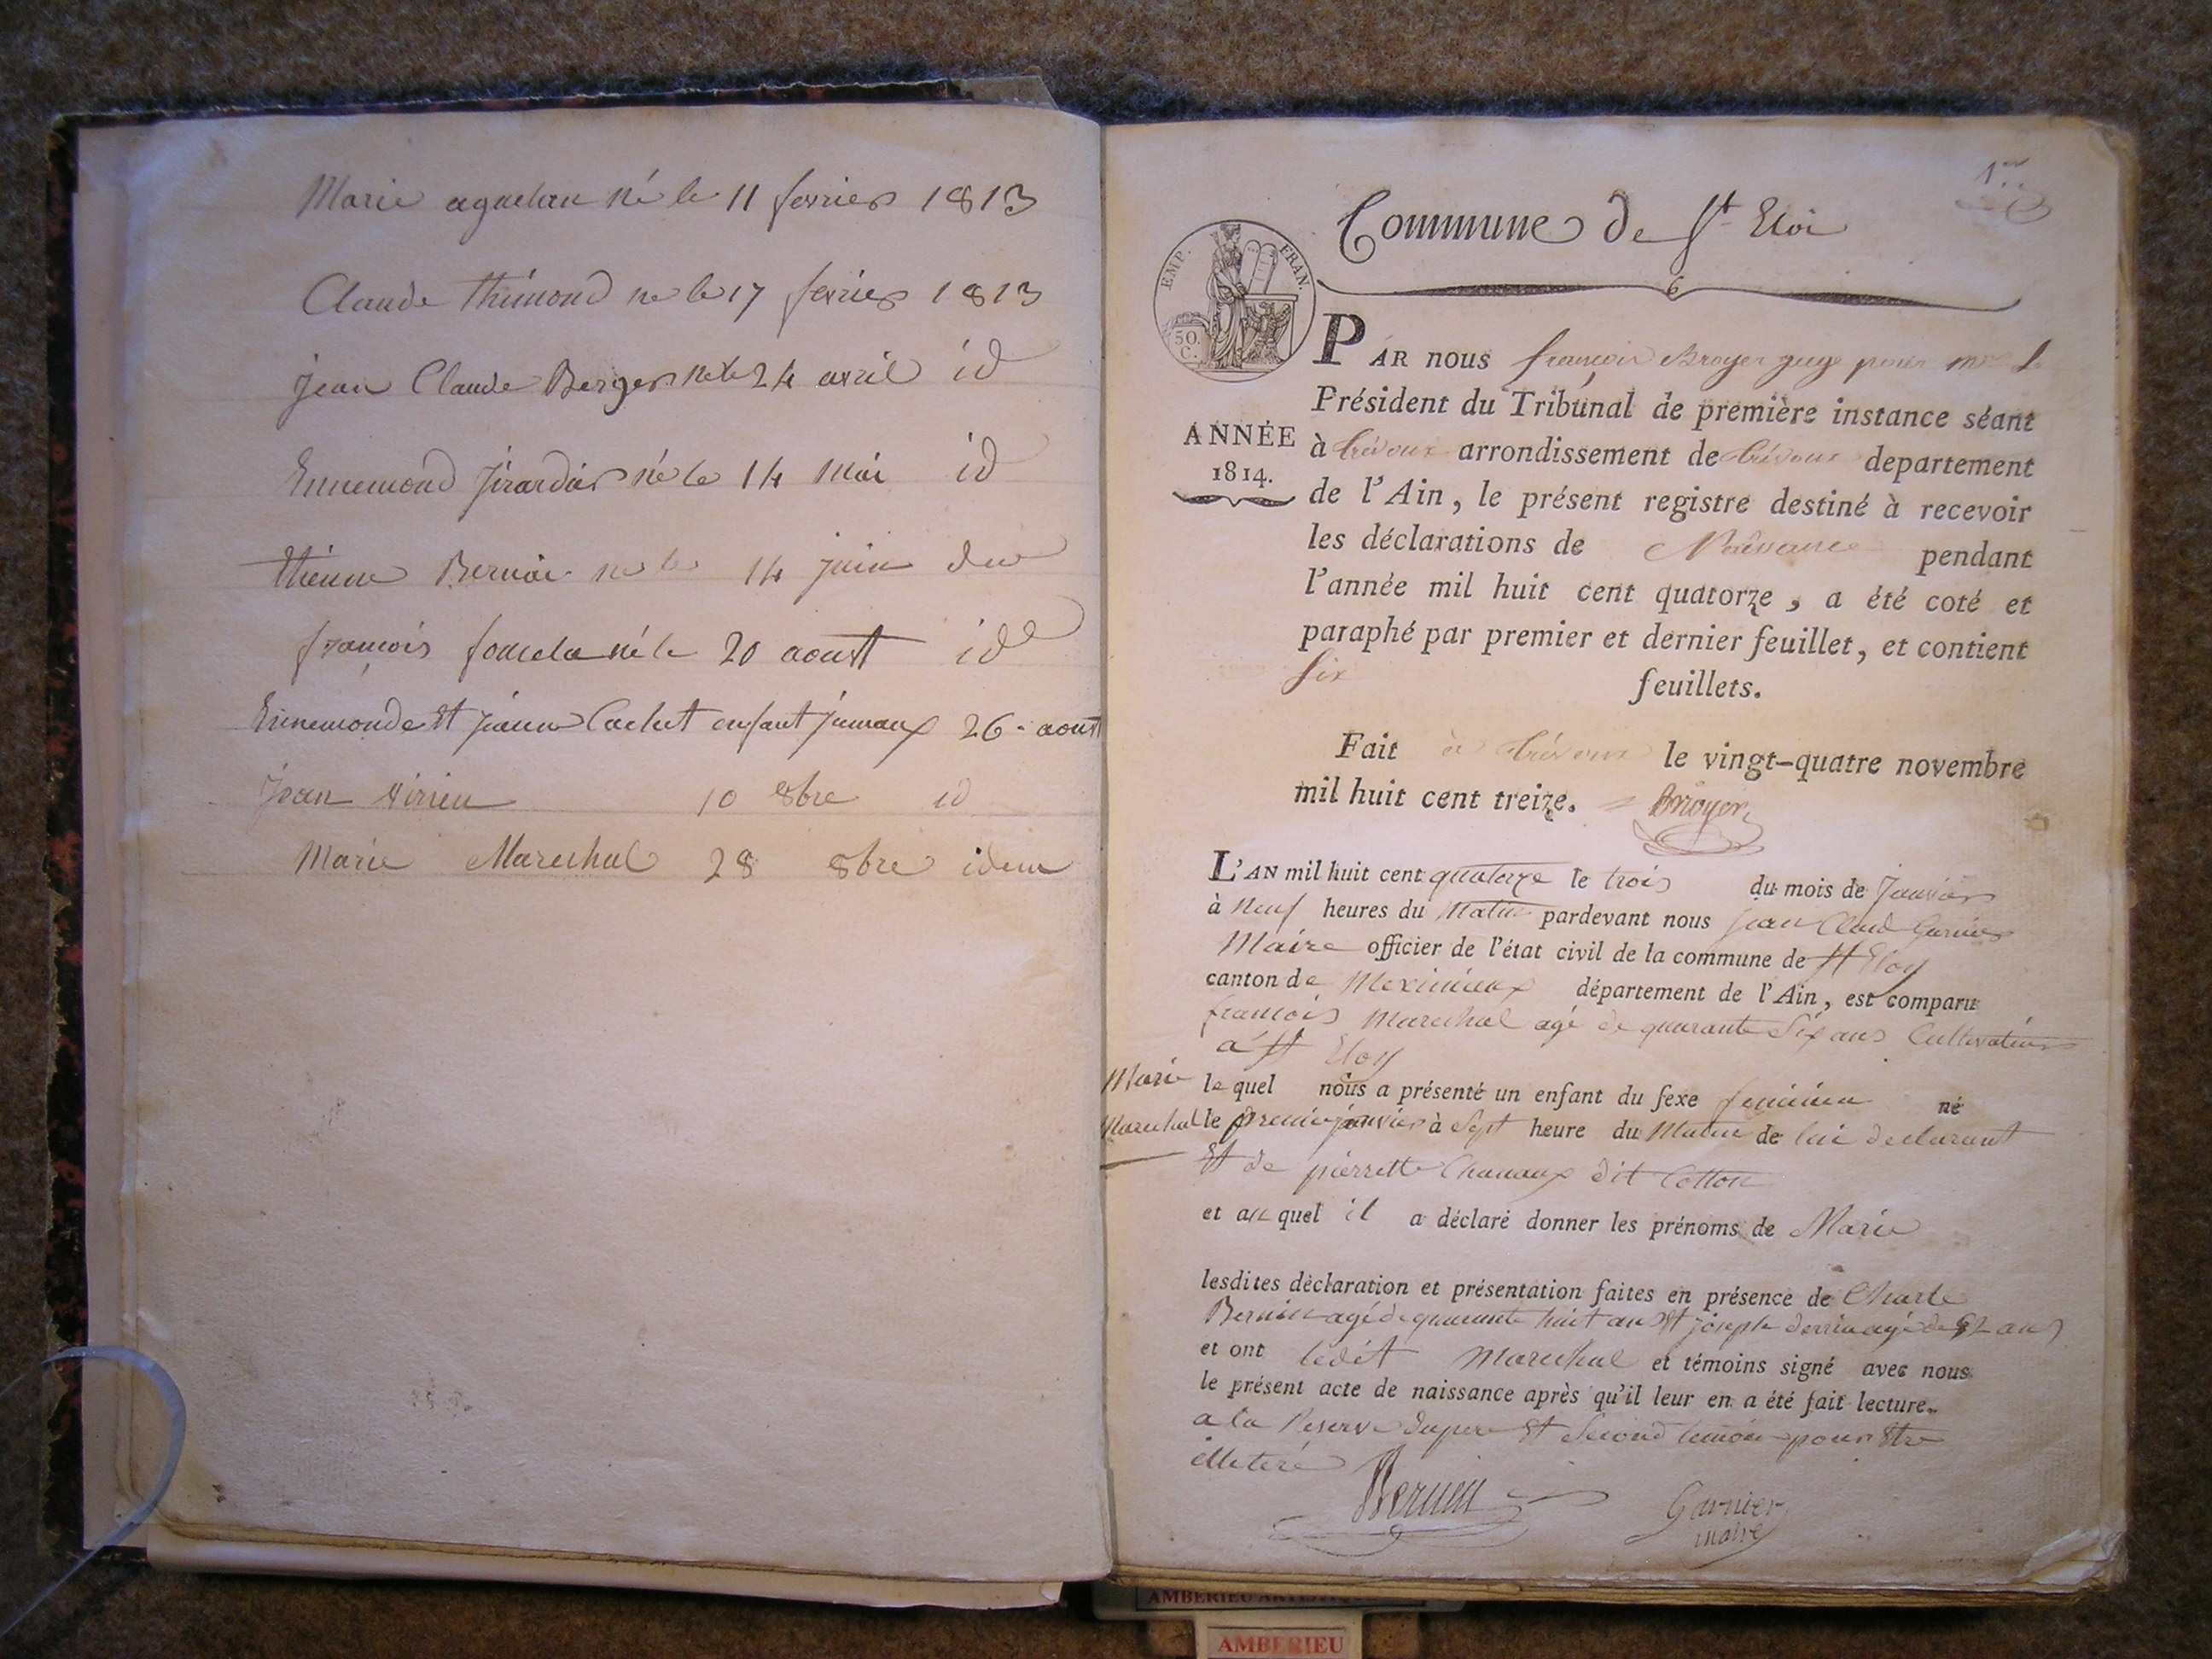 Marie aguelan né le 11 fevrier 1813
Claude thimond ne le 17 fevrier 1813
jean Claude Berger ne le 24 avril id
Ennemond jirardin né le 14 mai id
thienne Bernin ne le 14 juin du
françois né le 20 aoust id
Ennemonde et jeanne Cachet enfant jumaux 26 aoust
jean Virieu 10 8bre id
Marie Marechal 28 8bre idem
1er
Commune de St Eloi
EMP. FRAN.
50. C.
ANNÉE
1814.
PAR nous françois Broyer juge pour mr le
Président du Tribunal de première instance séant
à trévoux arrondissement de trévoux departement
de l'Ain, le présent registre destiné à recevoir
les déclarations de Naissance pendant
l'année mil huit cent quatorze, a été coté et
paraphé par premier et dernier feuillet, et contient
six feuillets.
Fait à trévoux le vingt-quatre novembre
mil huit cent treize. Broyer
L'AN mil huit cent quatorze le trois du mois de Janvier
à neuf heures du Matin pardevant nous jean Claud Garnier
Maire officier de l'état civil de la commune de St Eloy
canton de Meximieux département de l'Ain, est comparu
francois Marechal agé de quarante six ans Cultivateur
a St Eloy
Marie
Marechal
le quel nous a présenté un enfant du sexe feminin né
le premier janvier à sept heure du Matin de lui declarant
Et de pierrette Chanaux dit Cotton
et au quel il a déclaré donner les prénoms de Marie
lesdites déclaration et présentation faites en présence de Charle
Bernin agé de quarante huit an Et joseph agé de ans
et ont ledit Marechal et témoins signé avec nous
le présent acte de naissance après qu'il leur en a été fait lecture.
a la Reserve du pere Et second temoin pour Etre
illeteré
Bernin
Garnier
maire
AMBERIEU
AMBERIEU